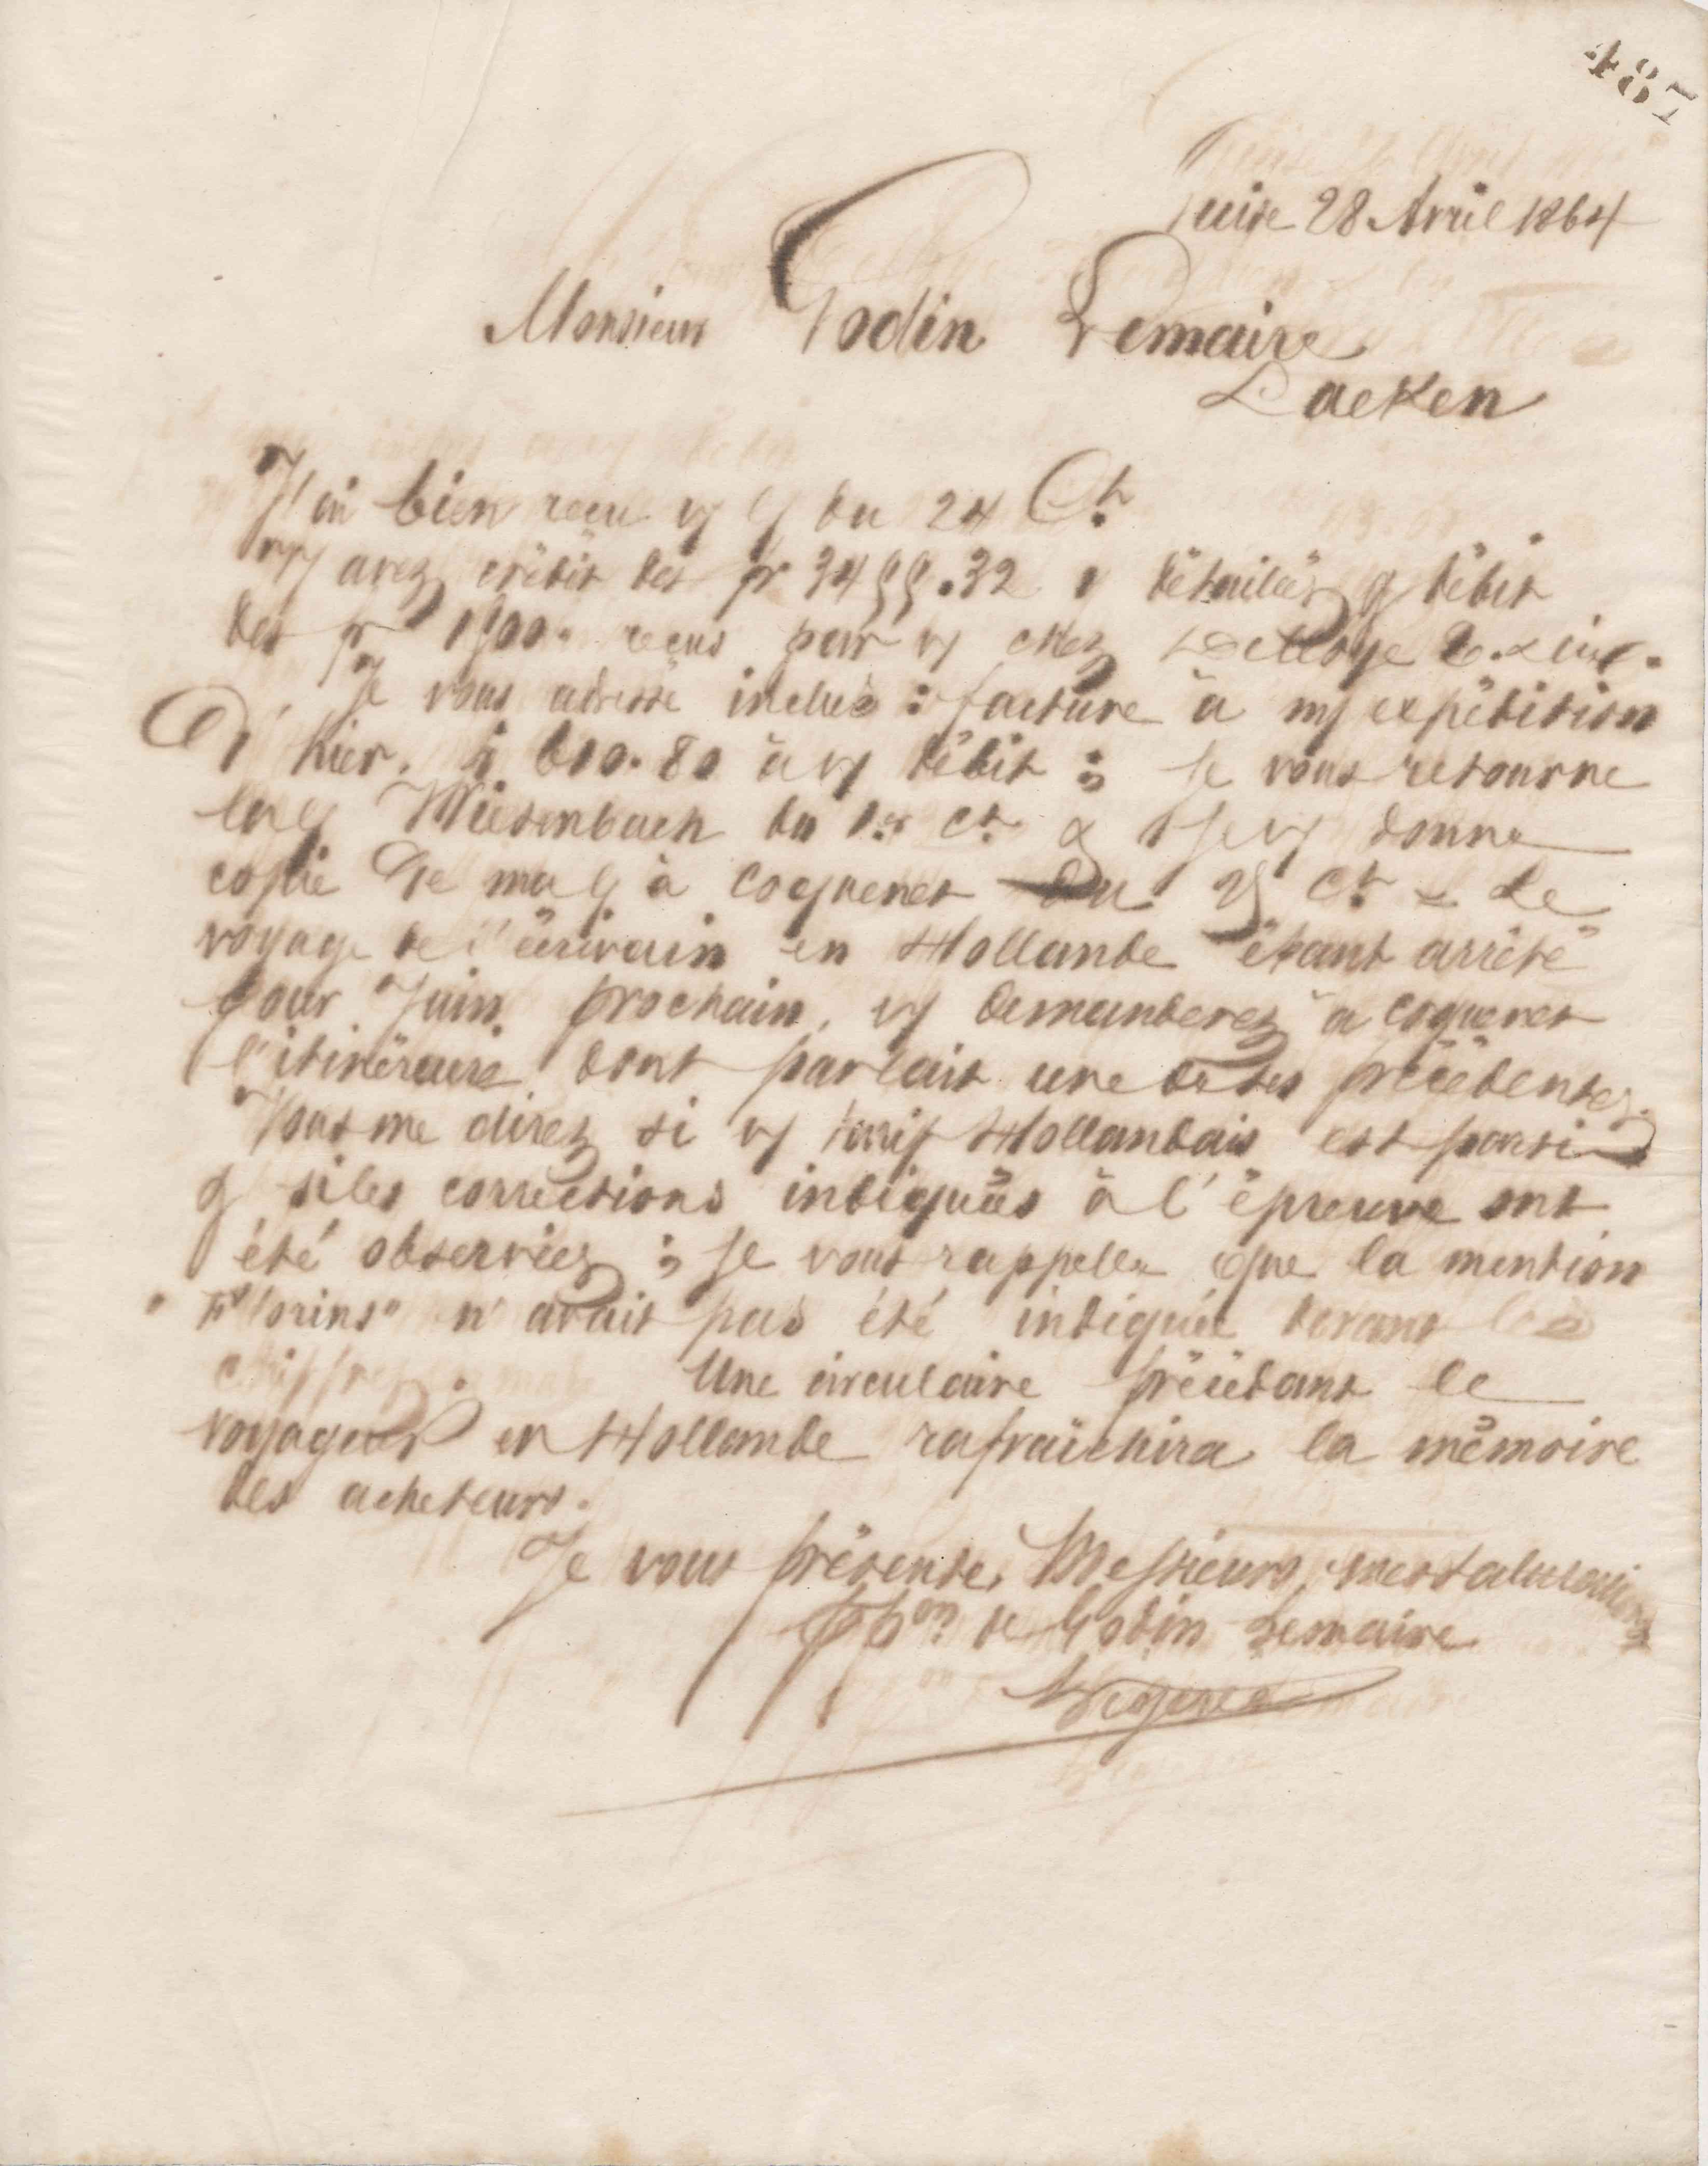 487
Guise 28 Avril 1864
Monsieur Godin Lemaire
Laeken
J'ai bien reçu vs du 24 Ct
avez crédit des fr 3455.32 détaillés & débit
des fr reçus par vs chez Delloye
Je vous adresse incluse : facture à my expédition
d'hier. 610.80 à vs débit ; Je vous retourne
la Wiesenbach du 1er Ct & Je vs donne
copie de ma à Coquenet du 25 Ct Le
voyage de l'écrivain en Hollande étant arrêté
pour Juin prochain, vs demanderez à Coquenet
l'itinéraire dont parlait une de ses précédentes.
Vous me direz si vs tarif Hollandais est parti
& si les corrections indiquées à l'épreuve ont
été observées ; Je vous rappelle que la mention
"Florins" n'avait pas été indiquée devant les
chiffres Une circulaire précédant le
voyageur en Hollande rafraîchira la mémoire
des acheteurs.
Je vous présente, Messieurs, mes salutations
pon de Godin Lemaire